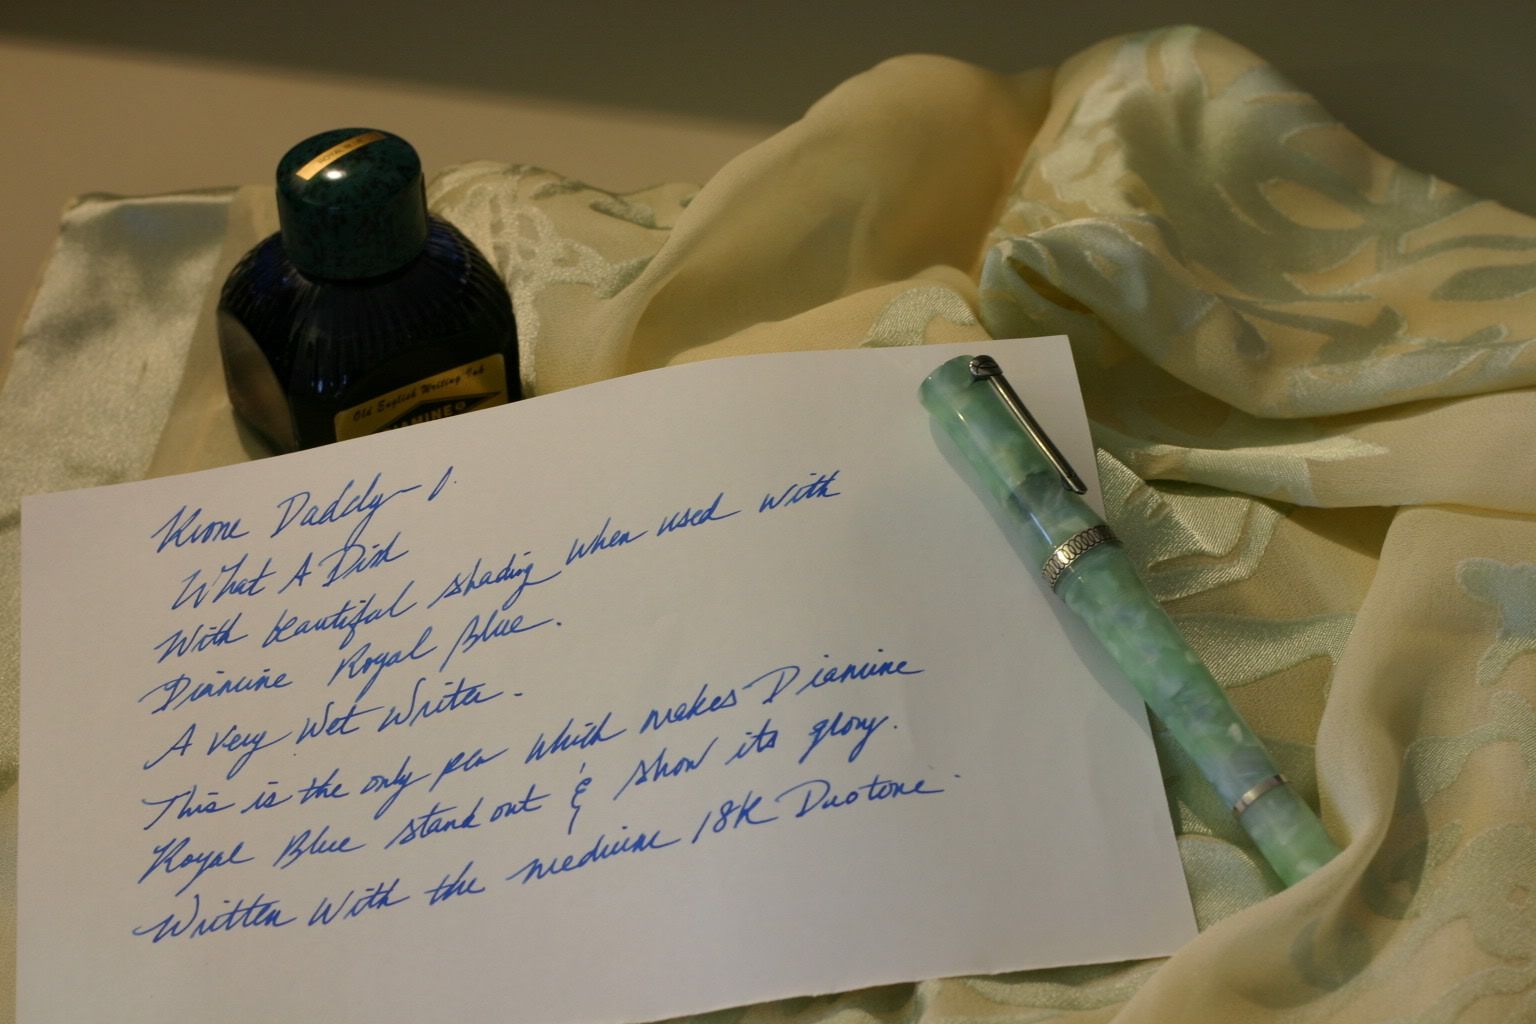 ROYAL BLUE
Old English Writing Ink
AMINE
Krone Daddy-O.
What A Dish
With beautiful shading when used with
Diamine Royal Blue.
A Very Wet Writer.
This is the only pen which makes Diamine
Royal Blue stand out & show its glory.
Written With the medicine 18K Duotone.